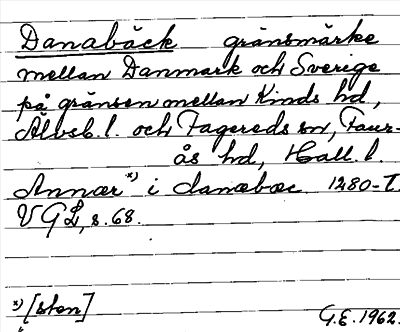 Danabäck gränsmärke
mellan Danmark och Sverige
på gränsen mellan Kinds hd,
Älvsb. l. och Fagereds sn, Faur-
ås hd, Hall. l.
Annær *) i danæbæc 1280-t.
VGL, s. 68.
*) [sten]
G.E. 1962.